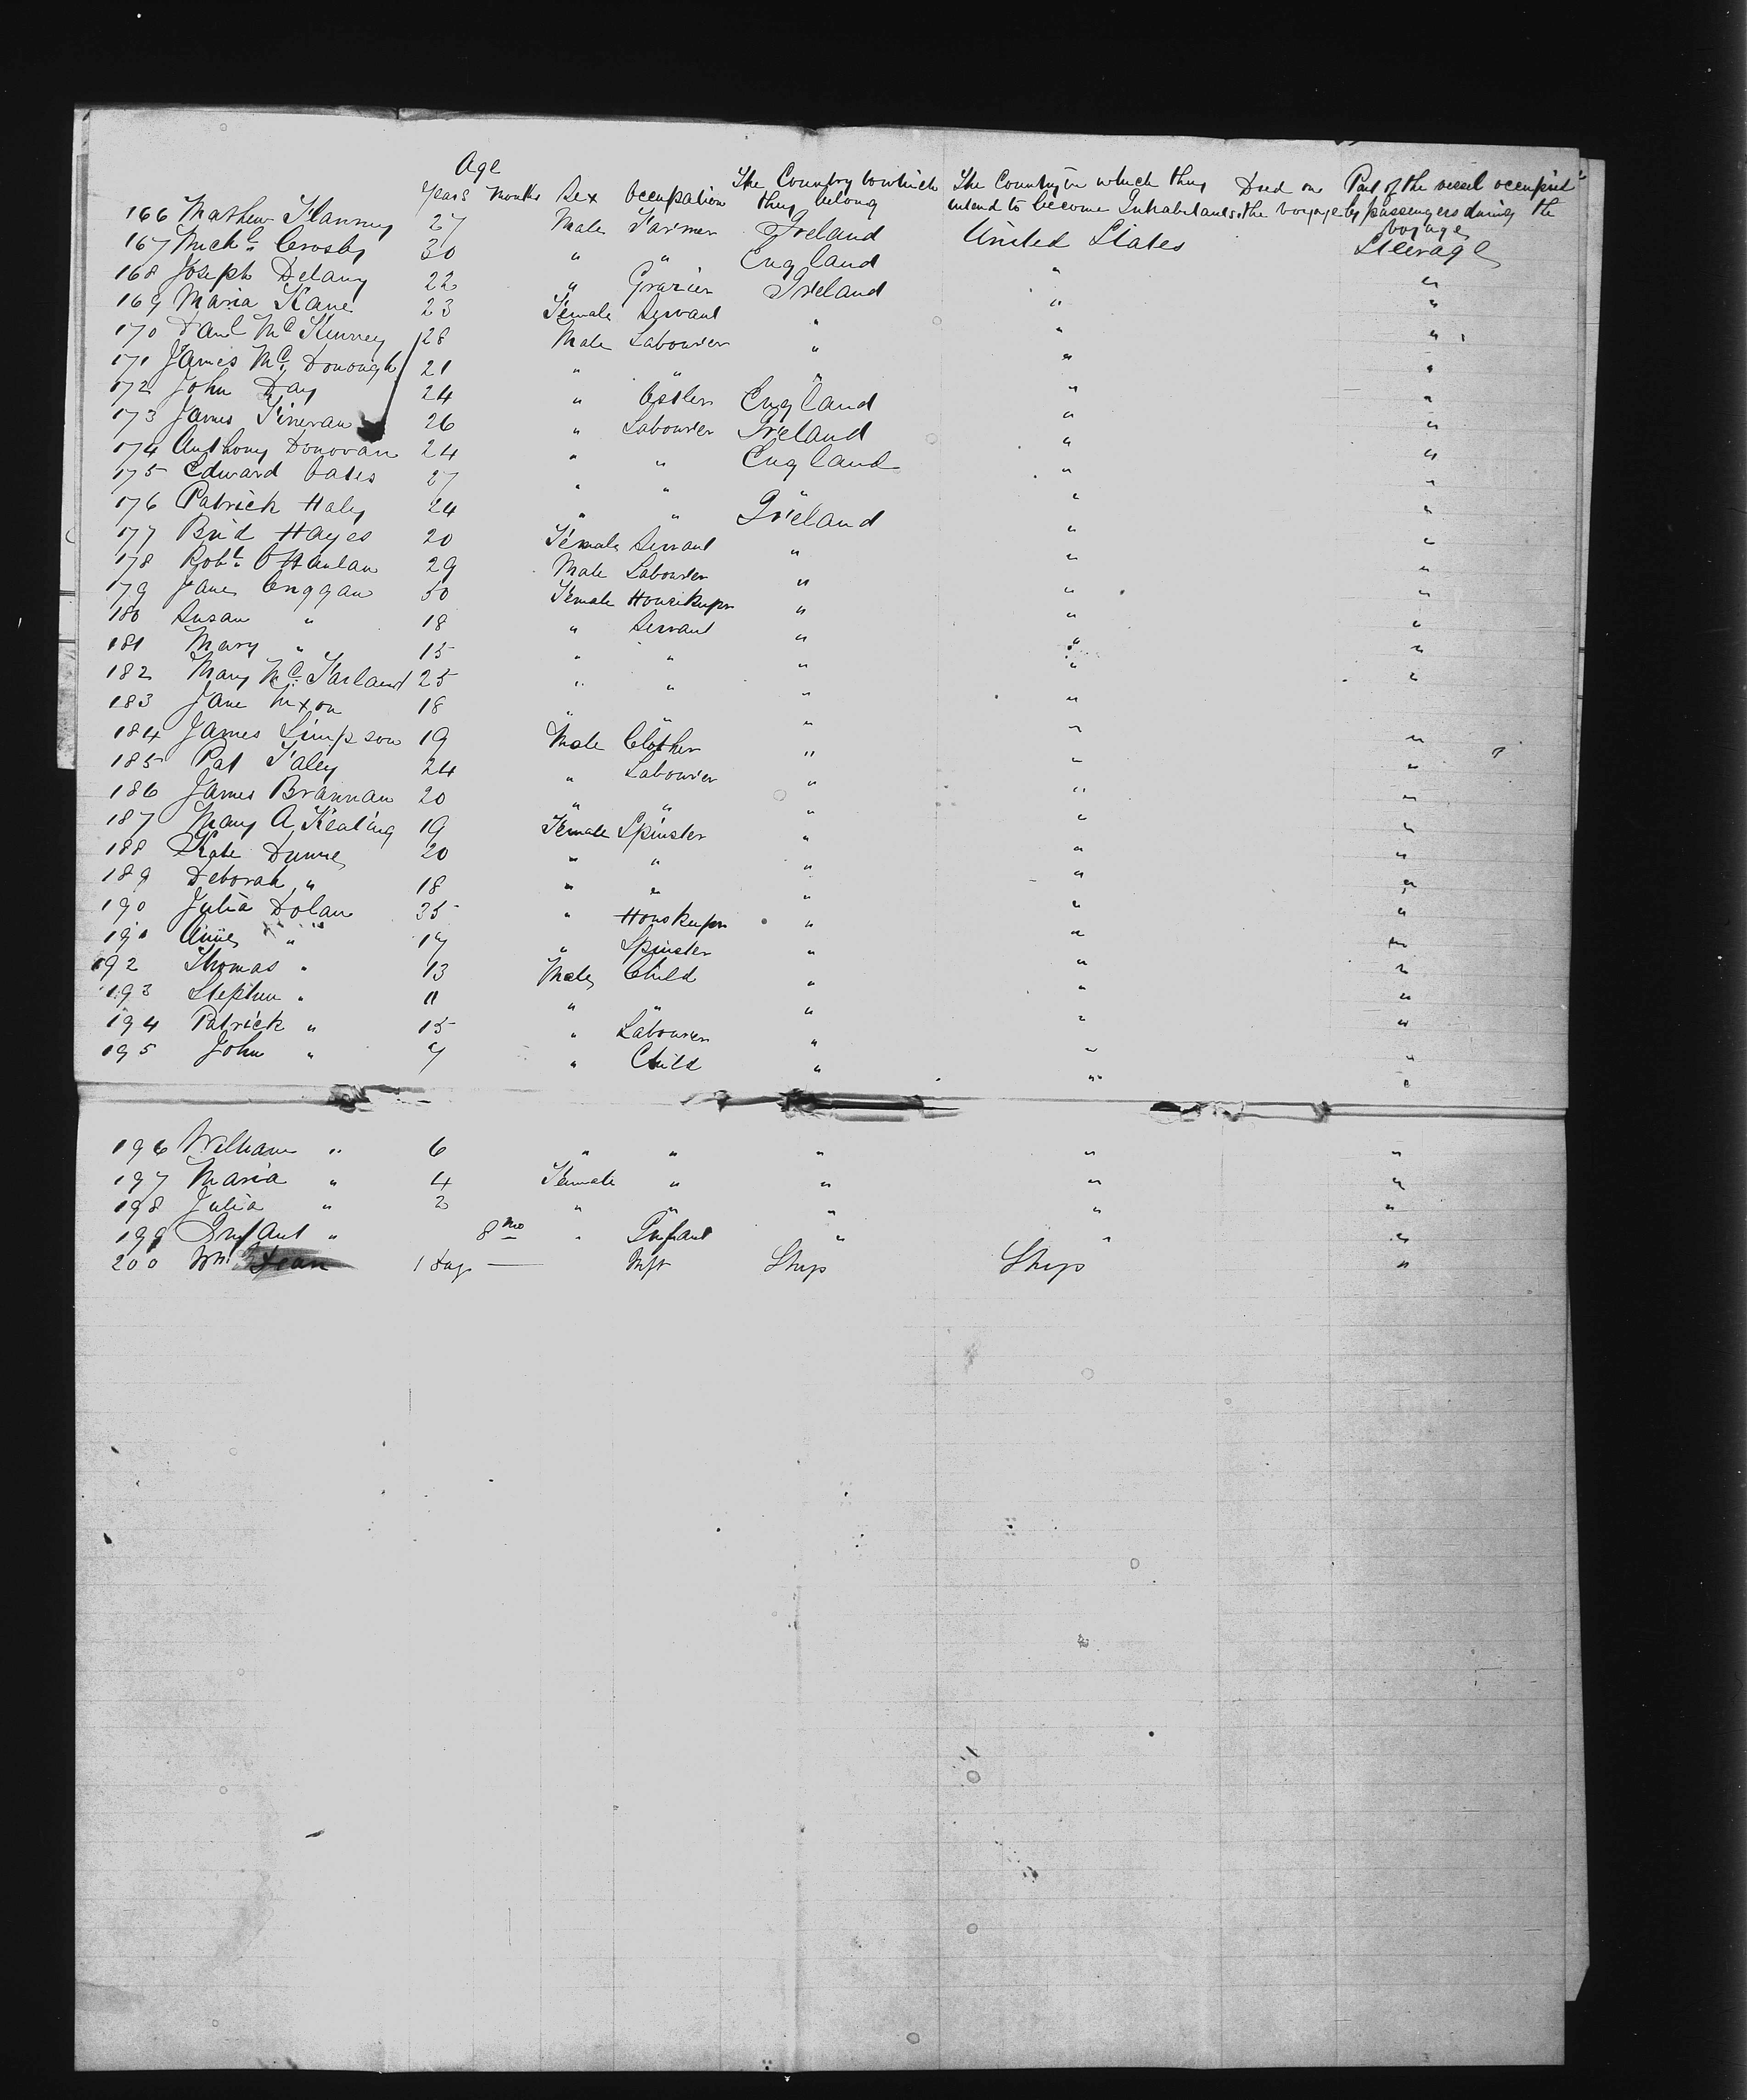 Age
Years Months Sex Occupation The Country to which they belong The Country in which they intend to become Inhabitants Died on the voyage Part of the vessel occupied by passengers during the voyage
166 Mathew Flannery 27 Male Farmer Ireland United States Steerage
167 Michl Crosby 30 " " England " "
168 Joseph Delany 22 " Grazier Ireland " "
169 Maria Kane 23 Female Servant " " "
170 Danl McKenney 28 Male Labourer " " "
171 James McDonough 21 " " " " "
172 John Day 24 " Ostler England " "
173 James Fineran 26 " Labourer Ireland " "
174 Anthony Donovan 24 " " England " "
175 Edward Oates 27 " " " " "
176 Patrick Haley 24 " " Ireland " "
177 Brid Hayes 20 Female Servant " " "
178 Robt O'Hanlan 29 Male Labourer " " "
179 Jane 50 Female Housekeepr " " "
180 Susan " 18 " Servant " " "
181 Mary " 15 " " " " "
182 Mary McFarland 25 " " " " "
183 Jane Nixon 18 " " " "
184 James Simpson 19 Male Clothier " " "
185 Pat Faley 24 " Labourer " " "
186 James Brannan 20 " " " " "
187 Mary A Keating 19 Female Spinster " " "
188 Kate Dunne 20 " " " " "
189 Deborah " 18 " " " " "
190 Julia Dolan 35 " Houskeepr " " "
191 Annie " 17 " Spinster " " "
192 Thomas " 13 Male Child " " "
193 Stephen " 11 " " " " "
194 Patrick " 15 " Labourer " " "
195 John " 7 " Child " " "
196 William " 6 " " " " "
197 Maria " 4 Female " " " "
198 Julia " 2 " " " " "
199 Infant " 8 mo " Infant " " "
200 Wm Dean 1 day — Inft Ship Ship "